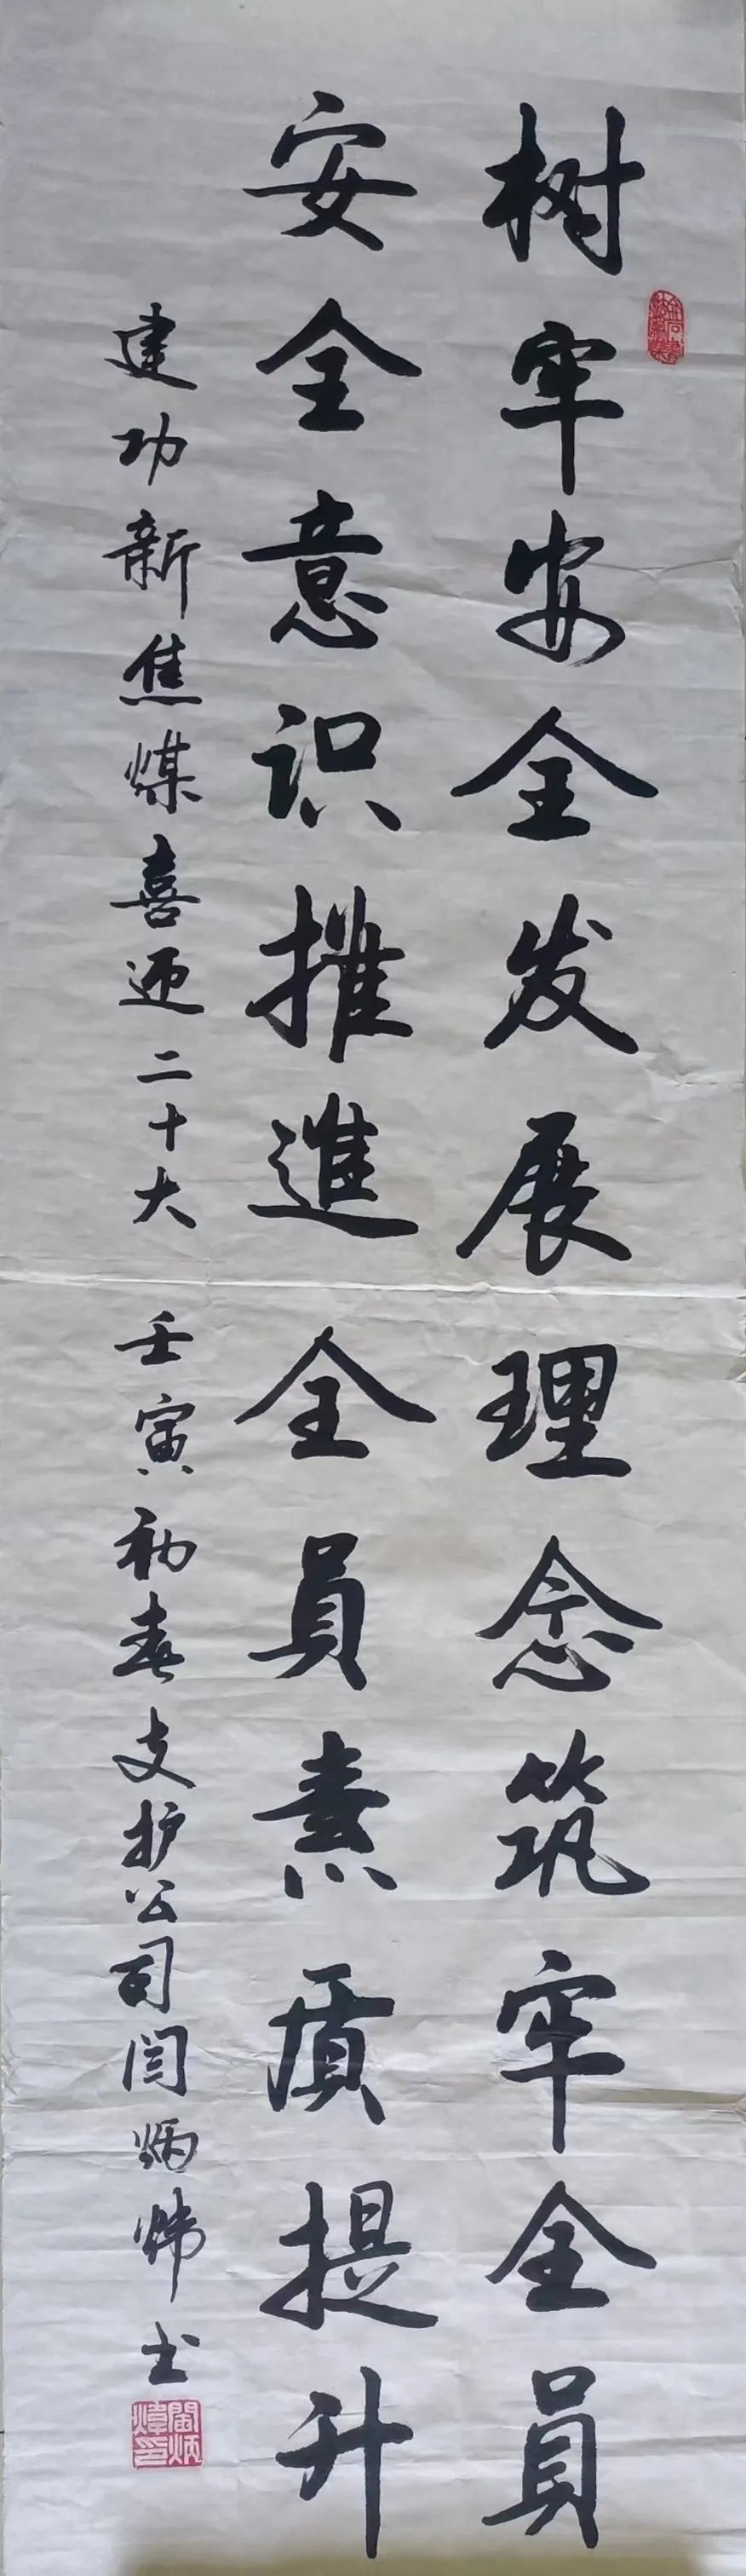 树牢安全发展理念筑牢全員
安全意识推進全員素质提升
建功新焦煤喜迎二十大 壬寅初春支护公司闫炳炜书
閆炳煒印